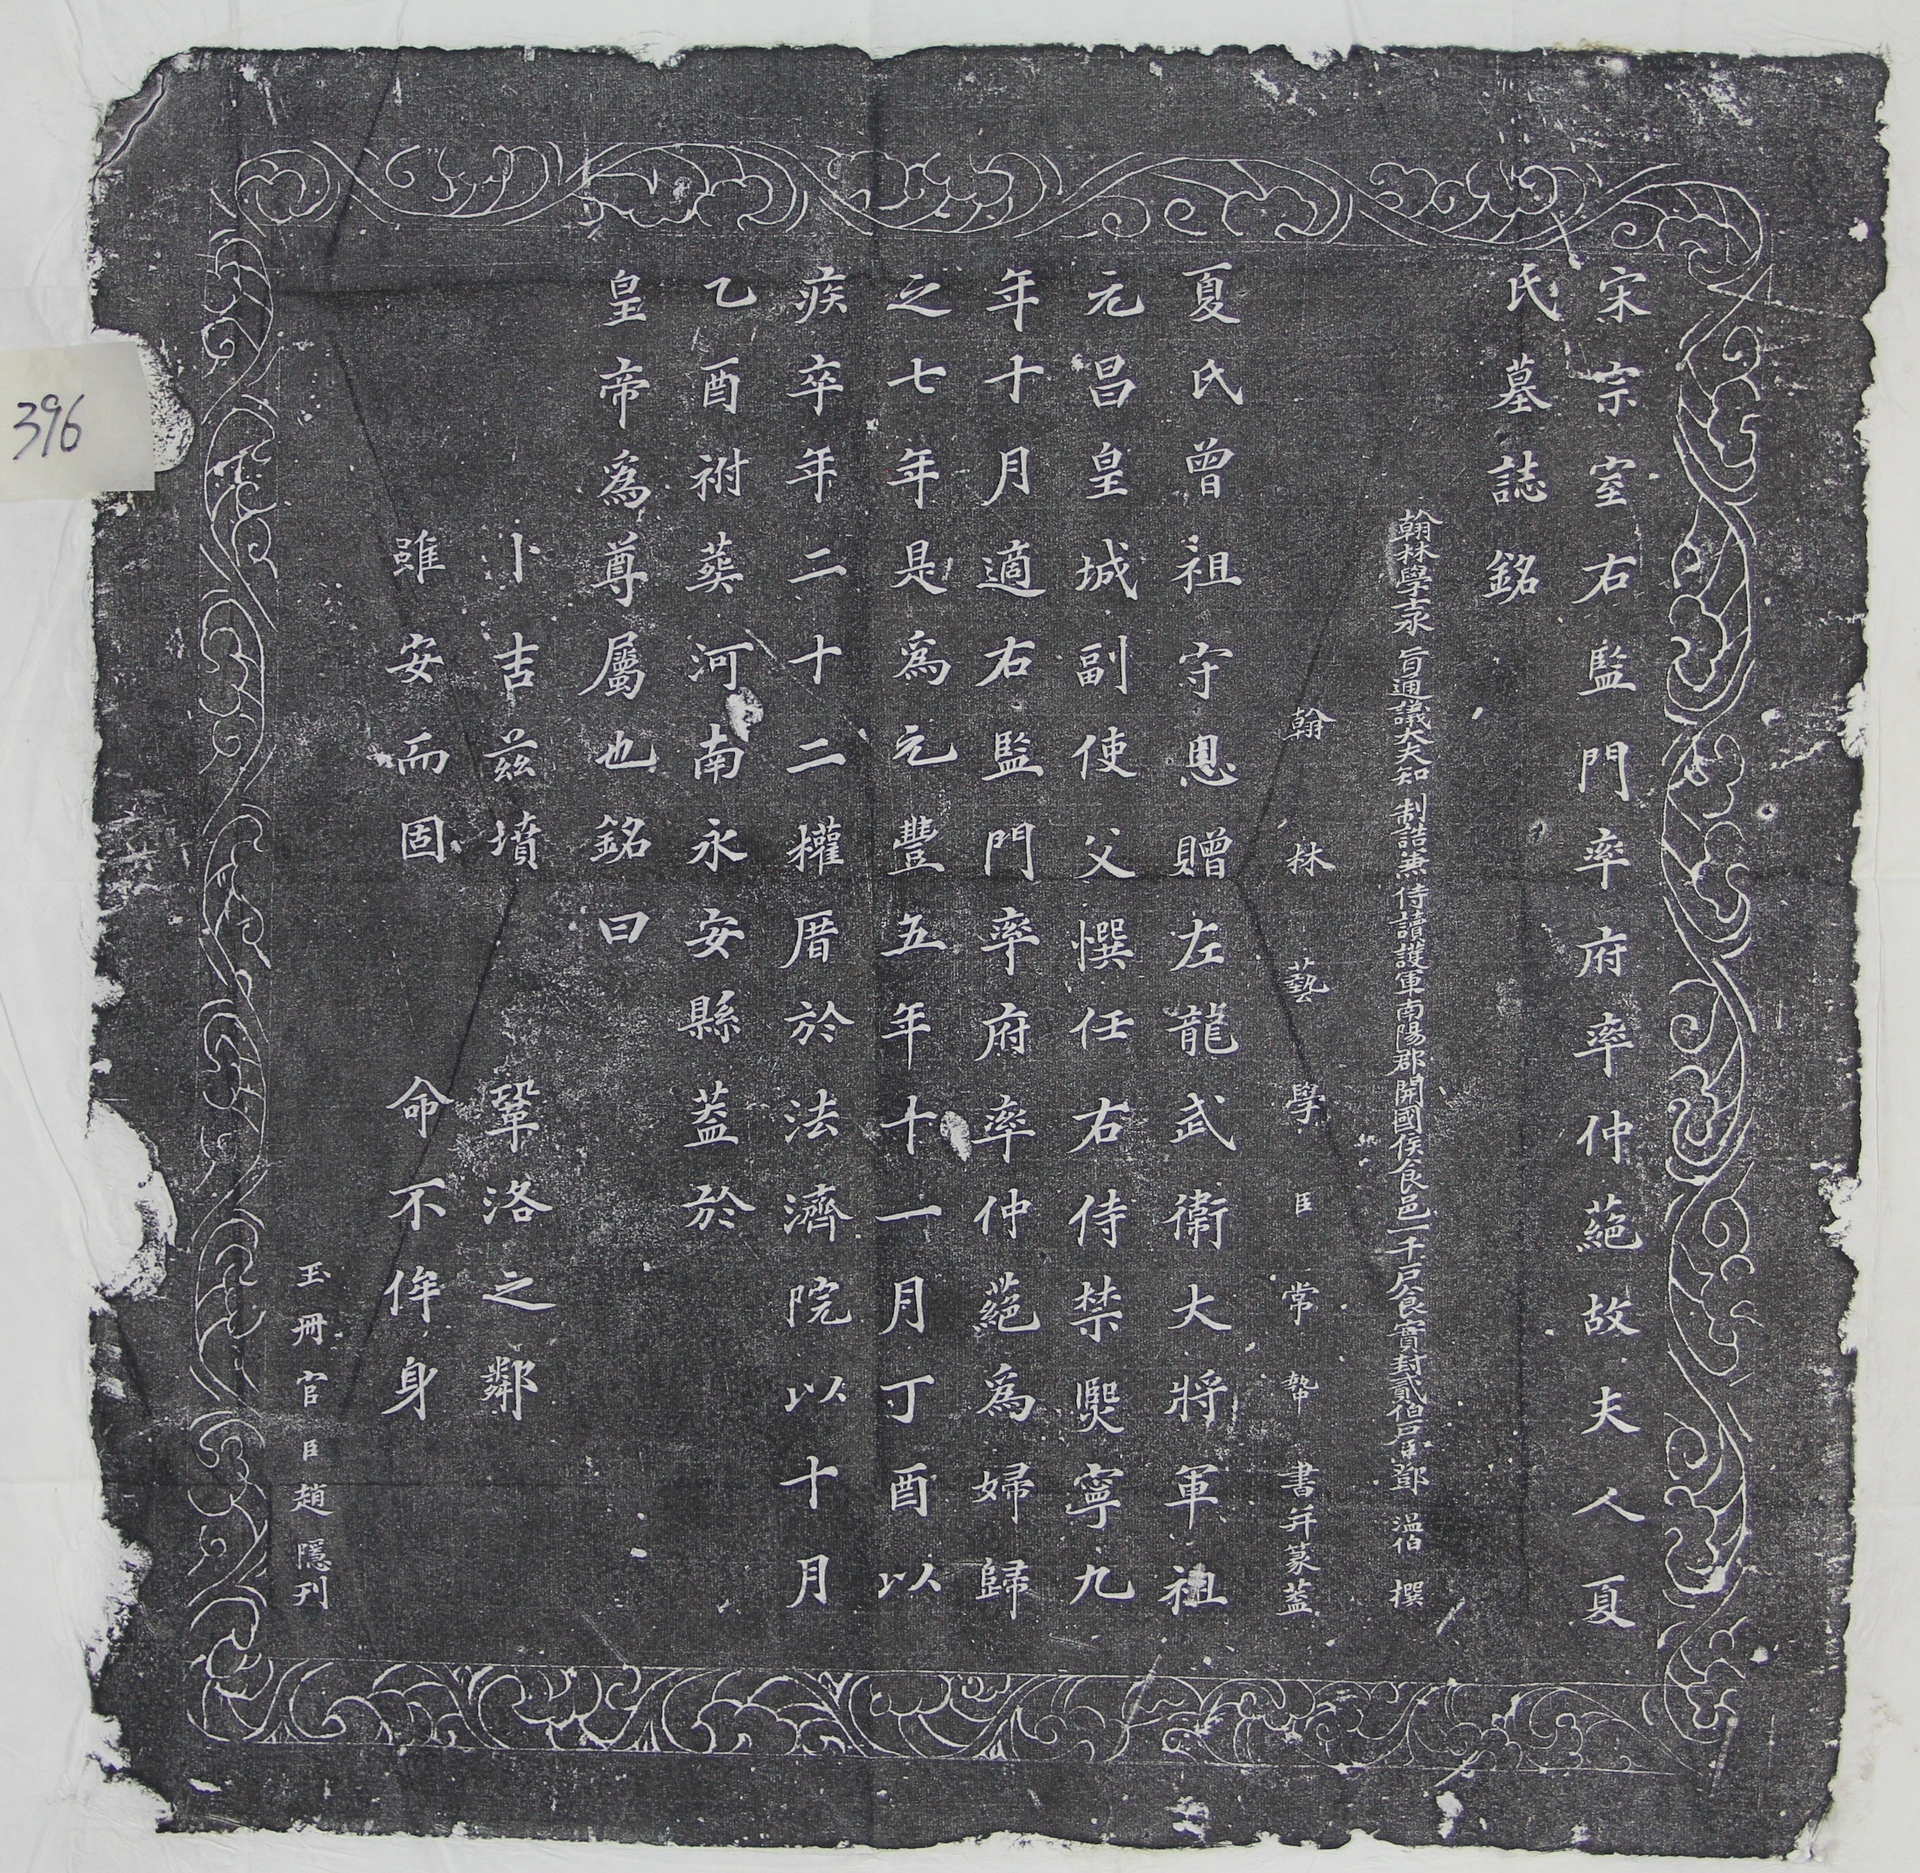 宋宗室右監門率府率仲葩故夫人夏
氏墓誌銘
翰林學士承旨通議大夫知制誥兼侍讀護軍南陽郡開國侯食邑一千戶食實封貳伯戶臣鄧溫伯撰
翰林藝學臣常㙯書并篆蓋
夏氏曾祖守恩贈左龍武衛大將軍祖
元昌皇城副使父僎任右侍禁熙寧九
年十月適右監門率府率仲葩為婦歸
之七年是為元豐五年十一月丁酉以
疾卒年二十二權厝於法濟院以十月
乙酉祔葬河南永安縣蓋於
皇帝為尊屬也銘曰
卜吉茲墳 鞏洛之鄰
雖安而固 命不侔身
玉冊官臣趙隱刊
396